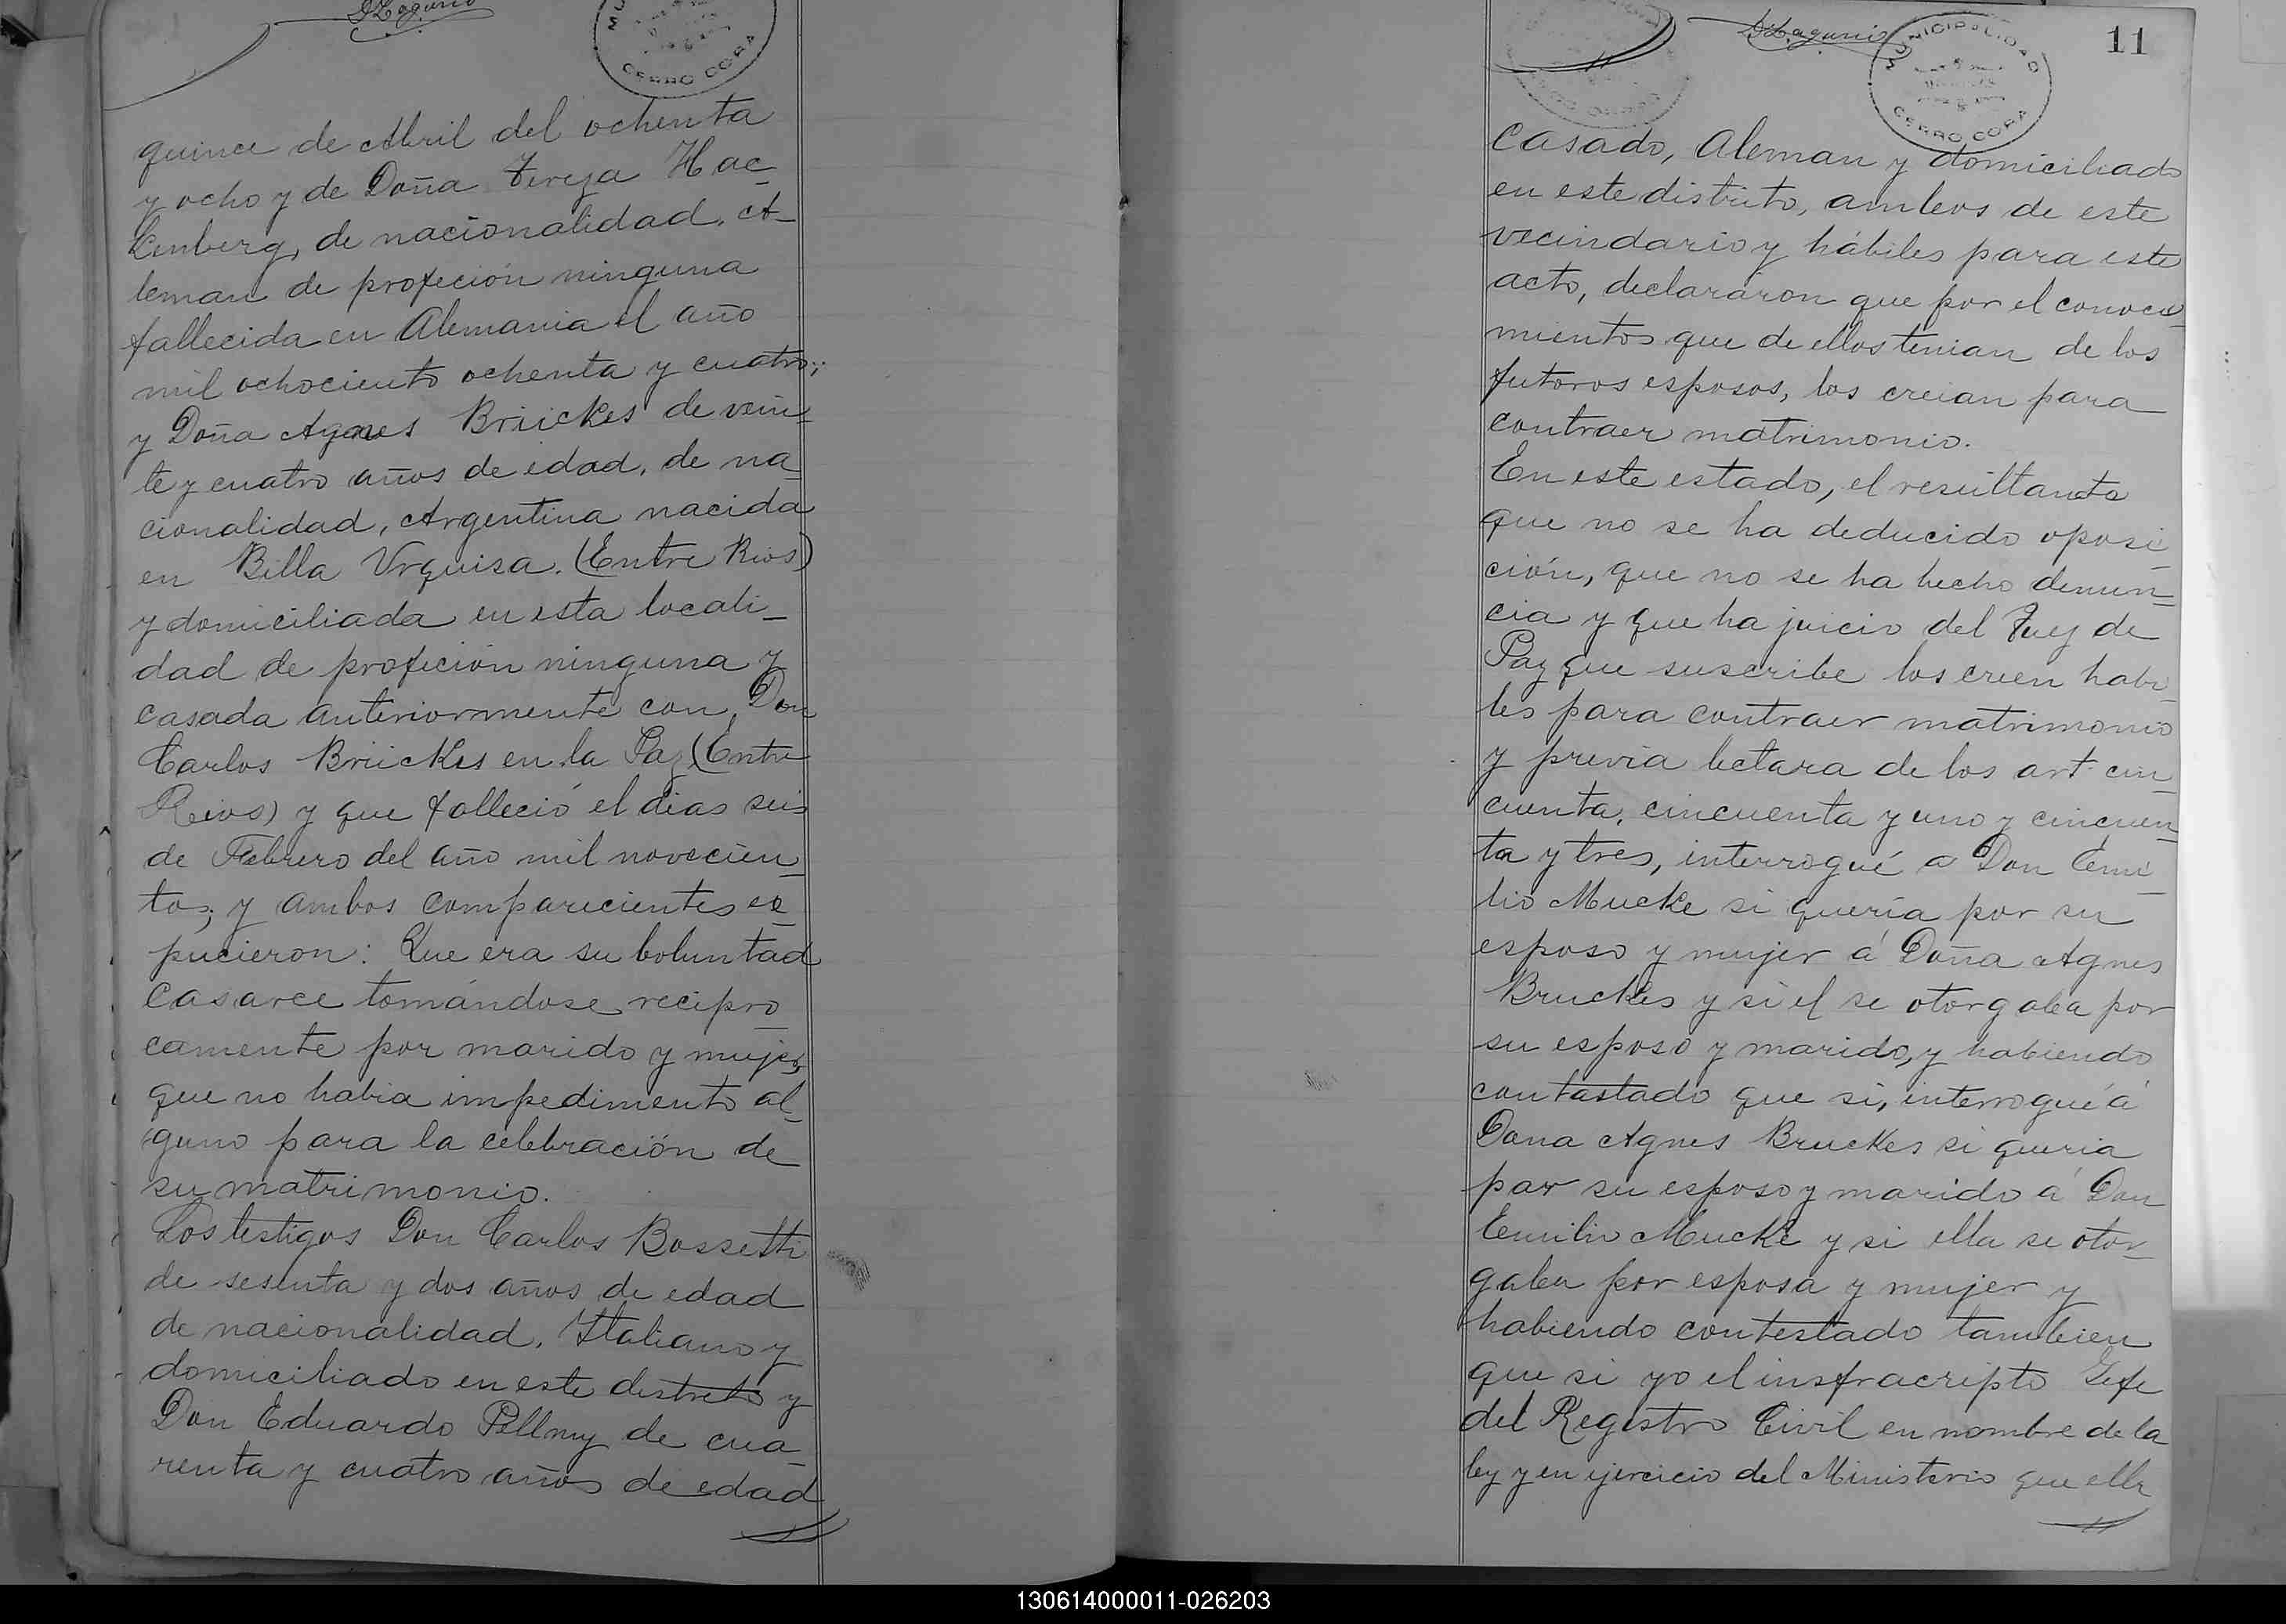 MUNICIPALIDAD
CERRO CORA
quince de Abril del ochenta
y ocho y de Doña Tereza Hac-
kenberg, de nacionalidad, A-
leman de profeción ninguna
fallecida en Alemania el año
mil ochociento ochenta y cuatro;
y Doña Agnes Brückes de vein-
te y cuatro años de edad, de na-
cionalidad, Argentina nacida
en Billa Urquisa. (Entre Rios)
y domiciliada en esta locali-
dad de profeción ninguna y
casada anteriormente con, Don
Carlos Brückes en la Paz (Entre
Reios) y que falleció el dias seis
de Febrero del año mil novecien-
tos; y ambos comparecientes ex-
pucieron: Que era su boluntad
casarce tomándose recipro-
camente por marido y mujer,
que no habia impedimento al-
guno para la celebración de
su matrimonio.
Los testigos Don Carlos Bossetti
de sesenta y dos años de edad
de nacionalidad, Italiano y
domiciliado en este distreto y
Don Eduardo Pellny de cua-
renta y cuatro años de edad
MUNICIPALIDAD
CERRO CORA
11
Casado, Aleman y domiciliado
en este distrito, ambos de este
vecindario y hábiles para este
acto, declararon que por el conoci-
mientos que de ellos tenian de los
futoros esposos, los creian para
contraer matrimonio.
En este estado, el resultante
que no se ha deducido oposi-
ción, que no se ha hecho denun-
cia y que ha juicio del Juez de
Paz que suscribe los creen habi-
les para contraer matrimonio
y previa lectara de los art. cin-
cuenta, cincuenta y uno y cincuen-
ta y tres, interrogué a Don Emi-
lio Mucke si quería por su
esposo y mujer á Doña Agnes
Bruckes y si el se otorgaba por
su esposo y marido, y habiendo
contastado que si, interrogué á
Dona Agnes Bruckes si queria
por su esposo y marido á Don
Emilio Mucke y si ella se otor-
gaba por esposa y mujer y
habiendo contestado tambien
que si yo el insfracripto Gefe
del Registro Civil en nombre de la
ley y en ejercicio del Ministerio que ella
130614000011-026203